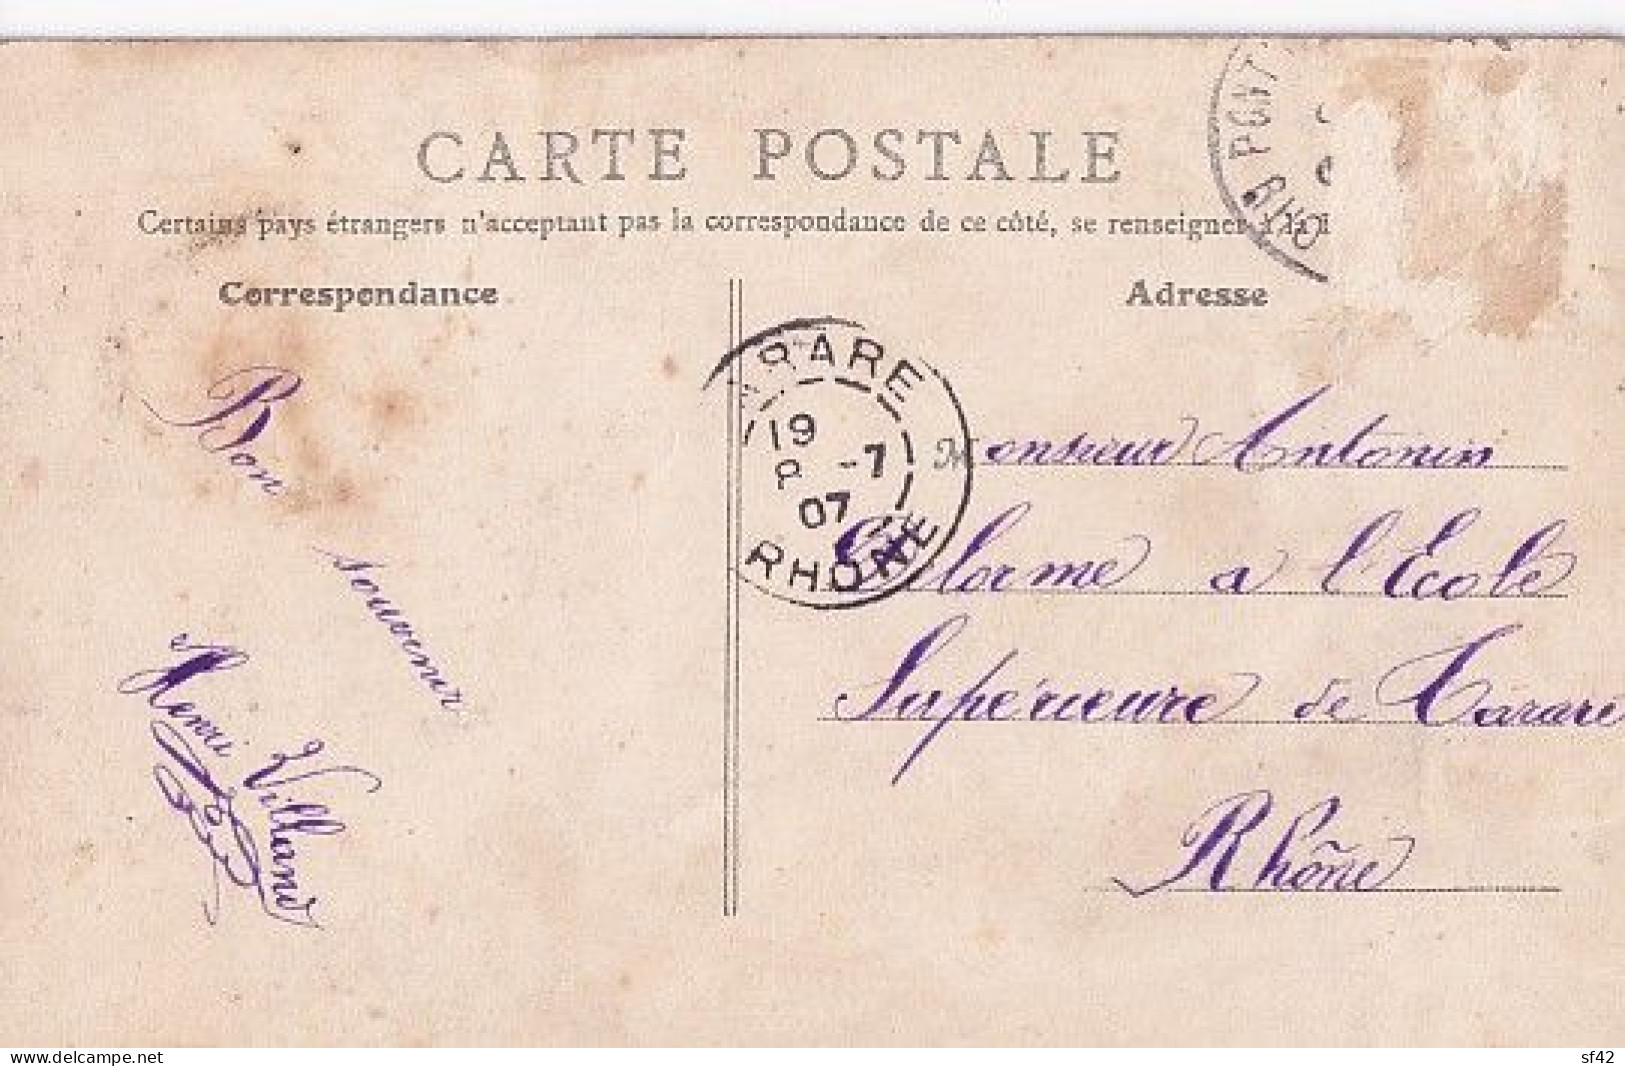 CARTE POSTALE
Certains pays étrangers n'acceptant pas la correspondance de ce côté, se renseigner à la
Correspondance
Adresse
Bon
souvenir
Henri Villand
TARARE
19
-7
07
RHONE
Monsieur Antonin
Delorme a l'Ecole
Supérieure de Tarare
Rhône
www.delcampe.net
sf42